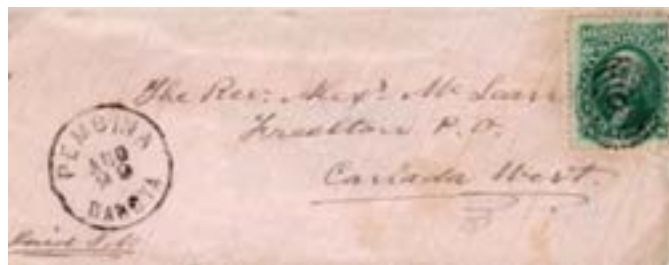 The Rev: Alexr. McLean
Freelton P.O.
Canada West.
PEMBINA
AUG
DAKOTA
Paid